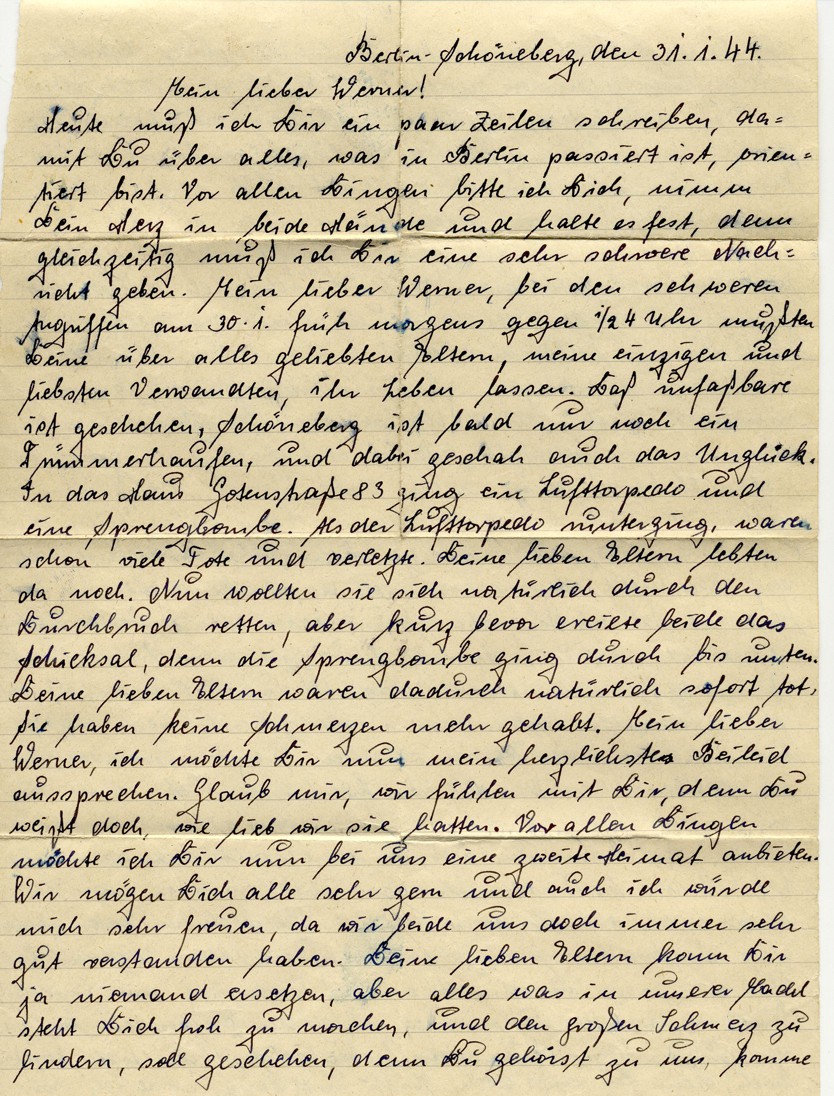 Berlin-Schöneberg, den 31.1.44.
Mein lieber Werner!
Heute muß ich Dir ein paar Zeilen schreiben, da=
mit Du über alles, was in Berlin passiert ist, orien=
tiert bist. Vor allen Dingen bitte ich Dich, nimm
Dein Herz in beide Hände und halte es fest, denn
gleichzeitig muß ich Dir eine sehr schwere Nach=
richt geben. Mein lieber Werner, bei den schweren
Angriffen am 30.1. früh morgens gegen 1/2 4 Uhr mußten
Deine über alles geliebten Eltern, meine einzigen und
liebsten Verwandten, ihr Leben lassen. Daß unfaßbare
ist geschehen, Schöneberg ist bald nur noch ein
Trümmerhaufen, und dabei geschah auch das Unglück.
In das Haus Gotenstraße 83 ging ein Lufttorpedo und
eine Sprengbombe. Als der Lufttorpedo runterging, waren
schon viele Tote und verletzte. Deine lieben Eltern lebten
da noch. Nun wollten sie sich natürlich durch den
Durchbruch retten, aber kurz bevor ereilte beide das
Schicksal, denn die Sprengbombe ging durch bis unten.
Deine lieben Eltern waren dadurch natürlich sofort tot,
Sie haben keine Schmerzen mehr gehabt. Mein lieber
Werner, ich möchte Dir nun mein herzlichstes Beileid
aussprechen. Glaub mir, wir fühlen mit Dir, denn Du
weißt doch, wie lieb wir sie hatten. Vor allen Dingen
möchte ich Dir nun bei uns eine zweite Heimat anbieten.
Wir mögen Dich alle sehr gern und auch ich würde
mich sehr freuen, da wir beide uns doch immer sehr
gut verstanden haben. Deine lieben Eltern kann Dir
ja niemand ersetzen, aber alles was in unserer Macht
steht Dich froh zu machen, und den großen Schmerz zu
lindern, soll geschehen, denn Du gehörst zu uns, komme